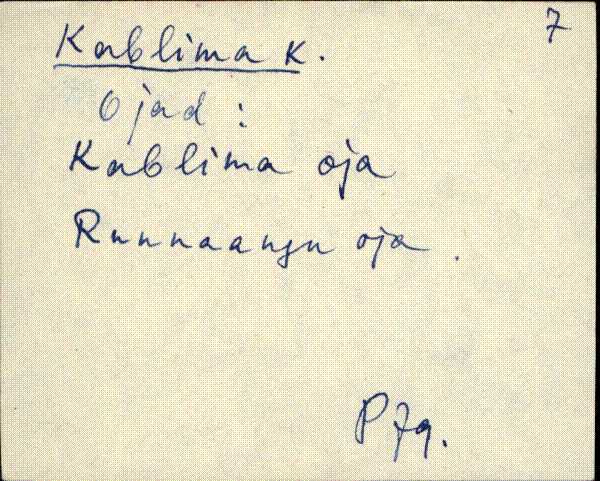 7
Kablima k.
Ojad:
Kablima oja
Runnaangu oja.